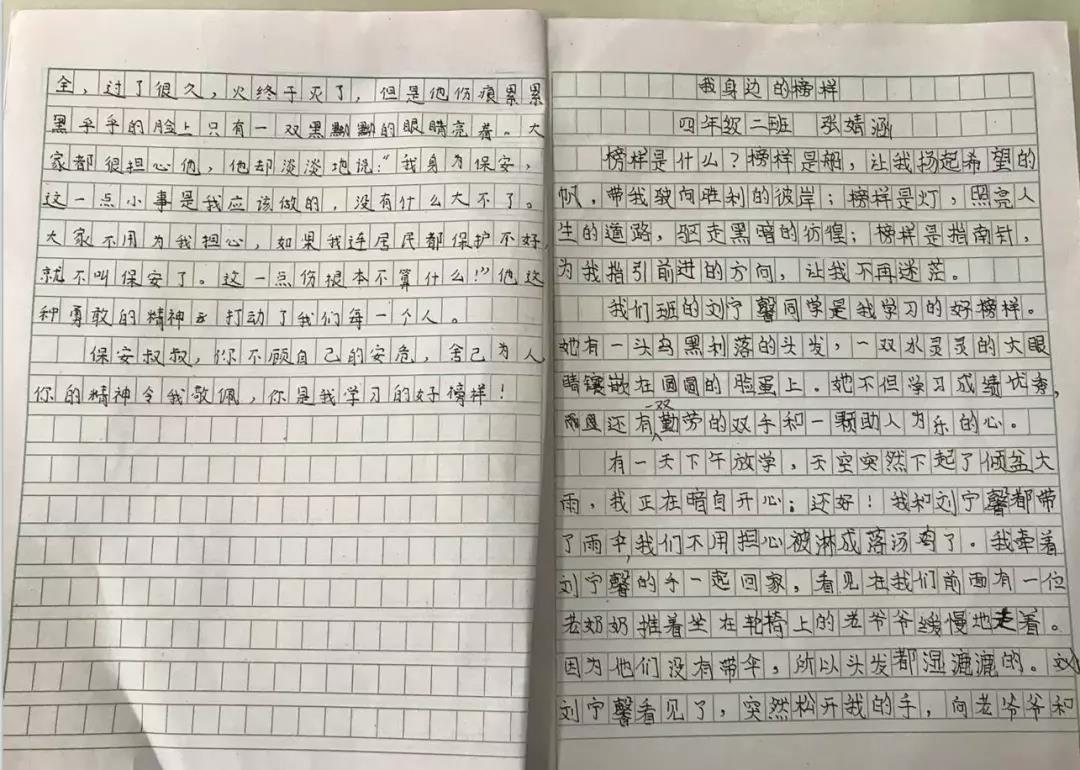 全，过了很久，火终于灭了，但是他伤痕累累
黑乎乎的脸上只有一双黑黝黝的眼睛亮着。大
家都很担心他，他却淡淡地说：“我身为保安，
这一点小事是我应该做的，没有什么大不了。
大家不用为我担心，如果我连居民都保护不好，
就不叫保安了。这一点伤根本不算什么！”他这
种勇敢的精神 打动了我们每一个人。
保安叔叔，你不顾自己的安危，舍己为人
你的精神令我敬佩，你是我学习的好榜样！
我身边的榜样
四年级二班 张婧涵
榜样是什么？榜样是船，让我扬起希望的
帆，带我驶向胜利的彼岸；榜样是灯，照亮人
生的道路，驱走黑暗的彷徨；榜样是指南针，
为我指引前进的方向，让我不再迷茫。
我们班的刘宁馨同学是我学习的好榜样。
她有一头乌黑利落的头发，一双水灵灵的大眼
睛镶嵌在圆圆的脸蛋上。她不但学习成绩优秀，
而且还有一双勤劳的双手和一颗助人为乐的心。
有一天下午放学，天空突然下起了倾盆大
雨，我正在暗自开心；还好！我和刘宁馨都带
了雨伞，我们不用担心被淋成落汤鸡了。我牵着
刘宁馨的手一起回家，看见在我们前面有一位
老奶奶推着坐在轮椅上的老爷爷缓慢地走着。
因为他们没有带伞，所以头发都湿漉漉的。刘
刘宁馨看见了，突然松开我的手，向老爷爷和